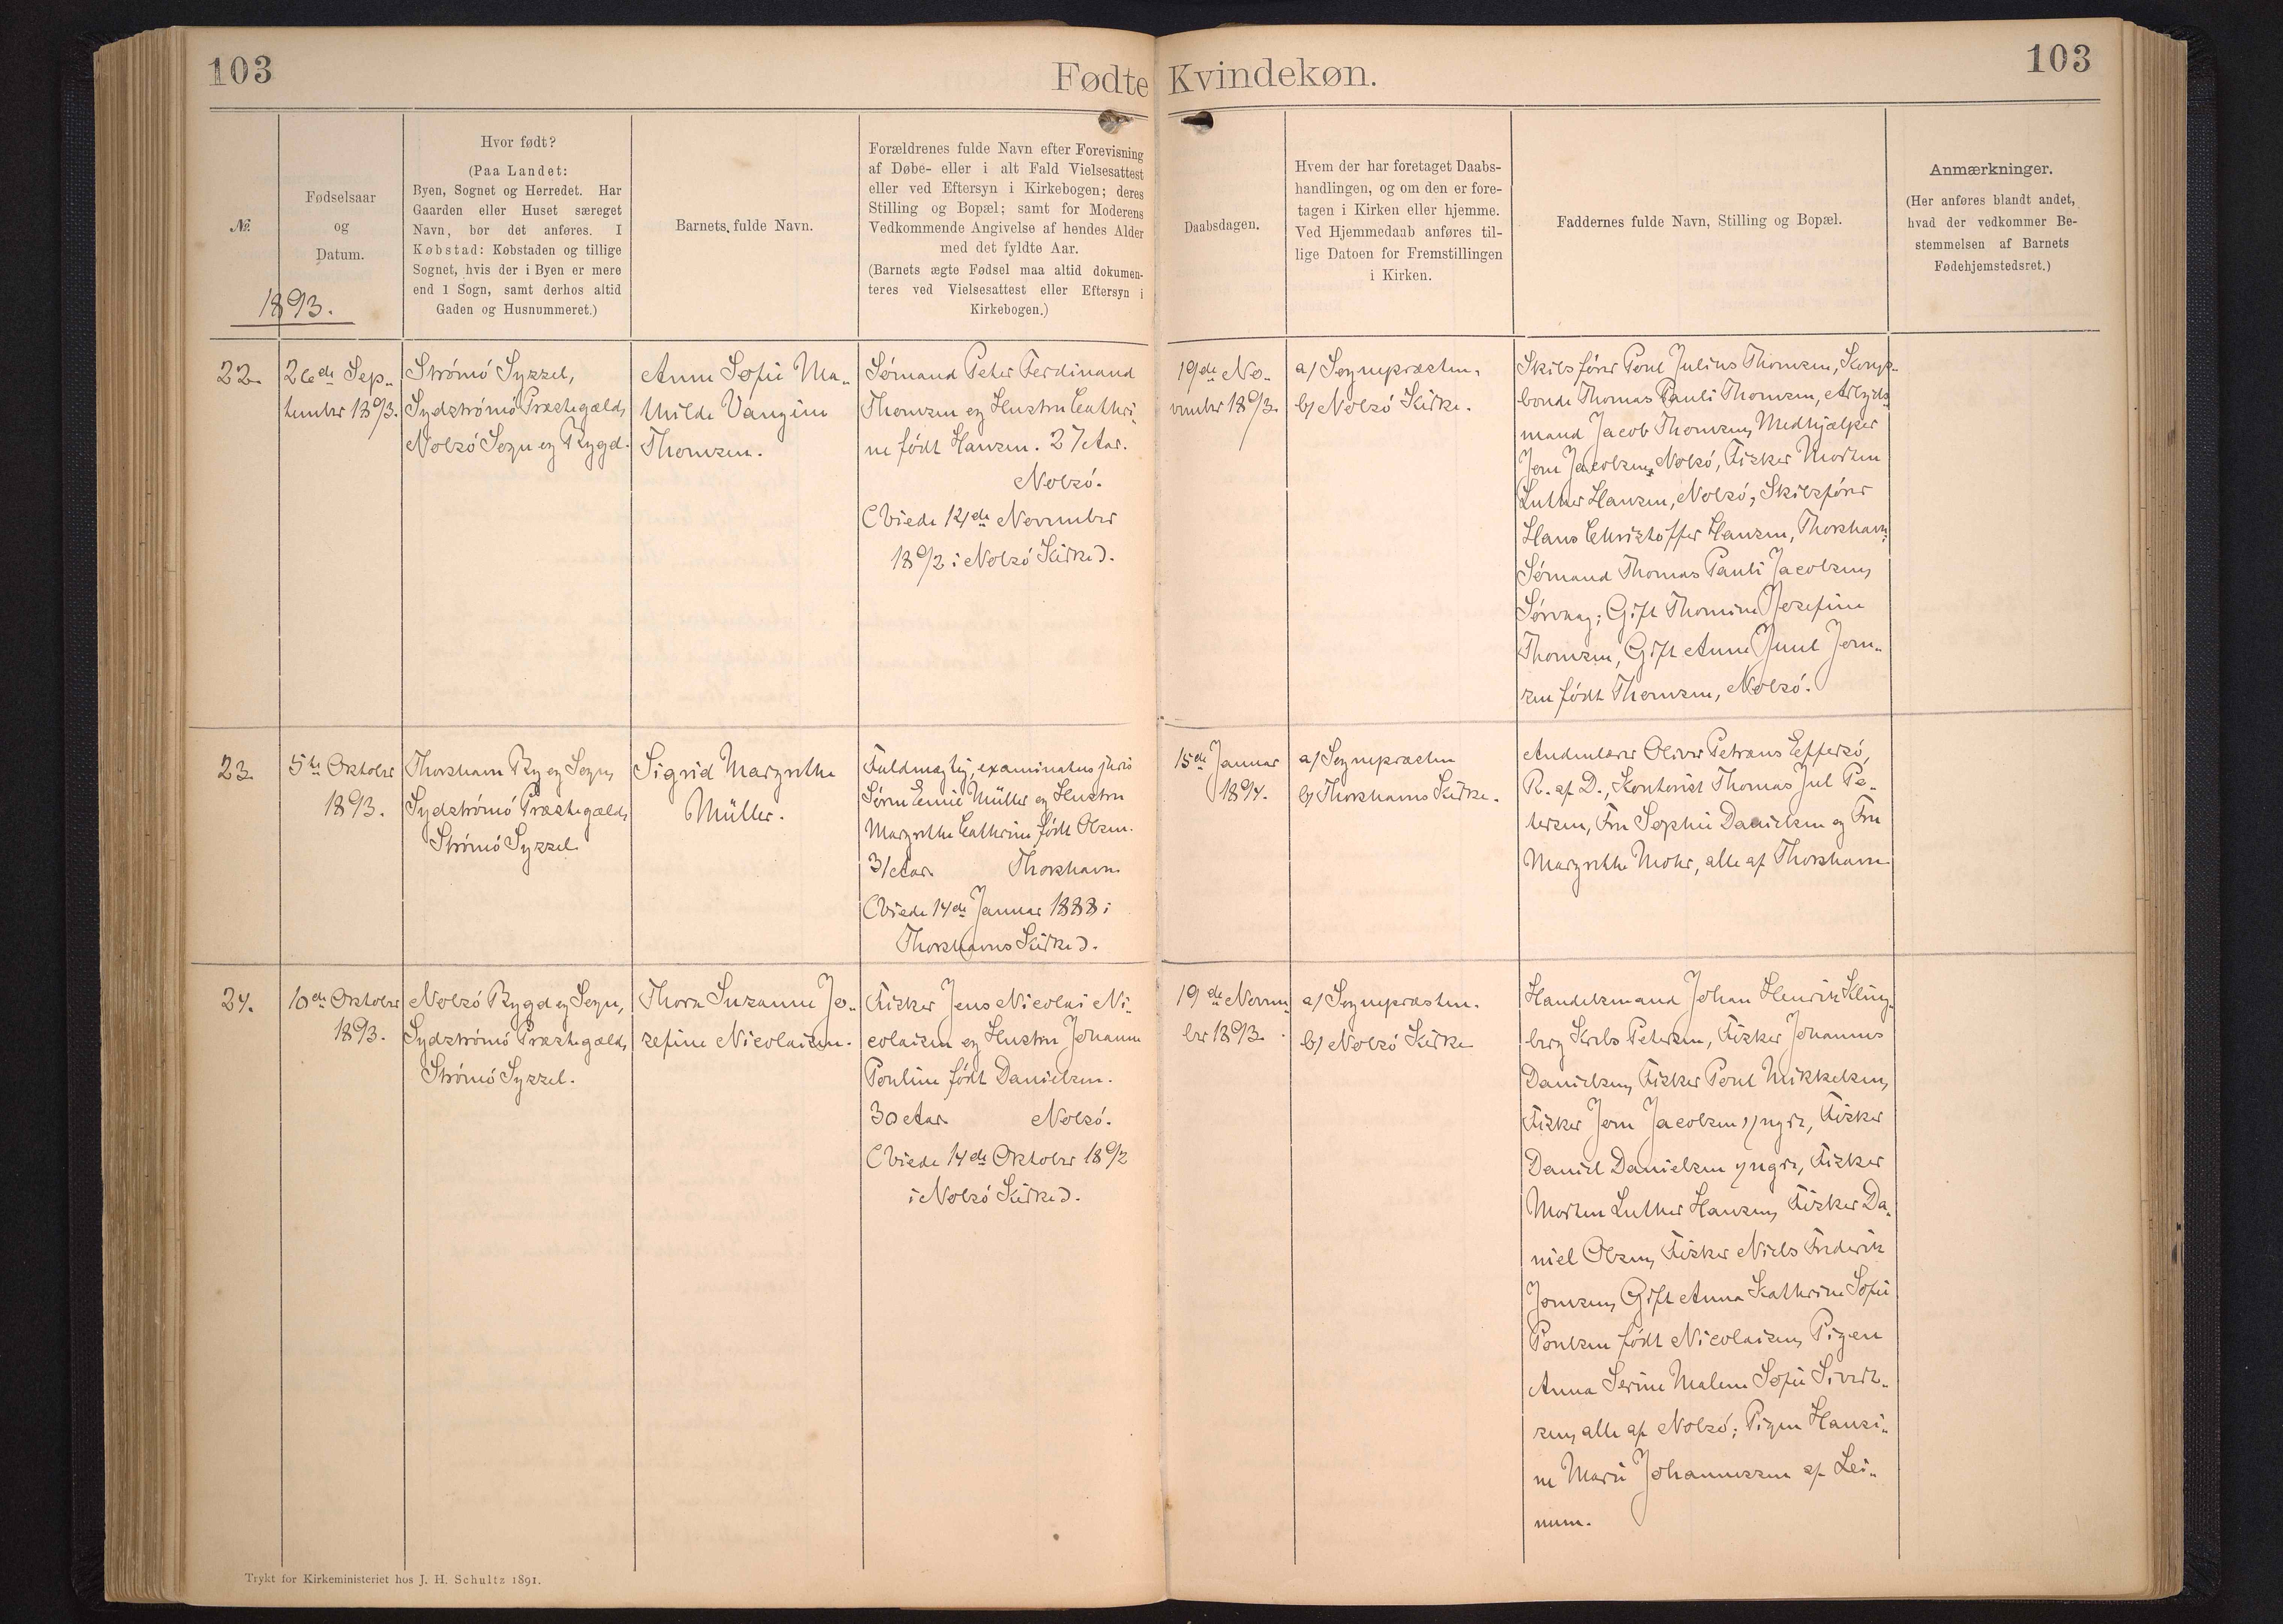 103
Fødte Kvindekøn.
103
№
Fødselsaar
og
Datum.
1893.
Hvor født?
(Paa Landet:
Byen, Sognet og Herredet. Har
Gaarden eller Huset særeget
Navn, bør det anføres. I
Købstad: Købstaden og tillige
Sognet, hvis der i Byen er mere
end 1 Sogn, samt derhos altid
Gaden og Husnummeret.)
Barnets fulde Navn.
Forældrenes fulde Navn efter Forevisning
af Døbe- eller i alt Fald Vielsesattest
eller ved Eftersyn i Kirkebogen; deres
Stilling og Bopæl; samt for Moderens
Vedkommende Angivelse af hendes Alder
med det fyldte Aar.
(Barnets ægte Fødsel maa altid dokumen-
teres ved Vielsesattest eller Eftersyn i
Kirkebogen.)
Daabsdagen.
Hvem der har foretaget Daabs-
handlingen, og om den er fore-
tagen i Kirken eller hjemme.
Ved Hjemmedaab anføres til-
lige Datoen for Fremstillingen
i Kirken.
Faddernes fulde Navn, Stilling og Bopæl.
Anmærkninger.
(Her anføres blandt andet,
hvad der vedkommer Be-
stemmelsen af Barnets
Fødehjemstedsret.)
22.
26de Sep-
tember 1893.
Strømø Syssel,
Sydstrømø Præstegæld,
Nolsø Sogn og Bygd.
Anne Sofie Ma-
thilde Vangine
Thomsen.
Sømand Peter Ferdinand
Thomsen og Hustru Cathri-
ne født Hansen. 27 Aar.
Nolsø.
(Viede 12de November
1892 i Nolsø Kirke).
19de No-
vember 1893.
a) Sognepræsten.
b) Nolsø Kirke.
Skibsfører Poul Julius Thomsen, Kongs-
bonde Thomas Pauli Thomsen, Arbejds-
mand Jacob Thomsen, Medhjælper
Joen Jacobsen, Nolsø, Fisker Morten
Luther Hansen, Nolsø, Skibsfører
Hans Christoffer Hansen, Thorshavn;
Sømand Thomas Pauli Jacobsen,
Sørvaag; Gift Thomine Josefine
Thomsen, Gift Anne Juul Joen-
sen født Thomsen, Nolsø.
23.
5te Oktober
1893.
Thorshavn By og Sogn,
Sydstrømø Præstegæld,
Strømø Syssel.
Sigrid Margrethe
Müller.
Fuldmægtig, examinatus juris
Søren Emil Müller og Hustru
Margrethe Cathrine født Olsen.
31 Aar. Thorshavn.
(Viede 14de Januar 1888 i
Thorshavns Kirke).
15de Januar
1894.
a) Sognepræsten
b) Thorshavns Kirke.
Andenlærer Oliver Petræus Effersø,
R. af D., Kontorist Thomas Jul Pe-
tersen, Fru Sophie Danielsen og Fru
Margrethe Mohr, alle af Thorshavn
24.
10de Oktober
1893.
Nolsø Bygd og Sogn,
Sydstrømø Præstegæld,
Strømø Syssel.
Thora Susanne Jo-
sefine Nicolaisen.
Fisker Jens Nicolai Ni-
colaisen og Hustru Johanne
Pouline født Danielsen.
30 Aar. Nolsø.
(Viede 14de Oktober 1892
i Nolsø Kirke).
19de Novem-
ber 1893.
a) Sognepræsten.
b) Nolsø Kirke
Handelsmand Johan Henrik Kling-
berg Petersen, Fisker Johannes
Danielsen, Fisker Poul Mikkelsen,
Fisker Joen Jacobsen yngre, Fisker
Daniel Danielsen yngre, Fisker
Morten Luther Hansen, Fisker Da-
niel Olsen, Fisker Niels Frederik
Joensen, Gift Anna Kathrine Sofie
Poulsen født Nicolaisen, Pigen
Anna Serine Malene Sofie Siverts-
sen, alle af Nolsø; Pigen Hansi-
ne Marie Johannessen af Lei-
num.
Trykt for Kirkeministeriet hos J. H. Schultz 1891.